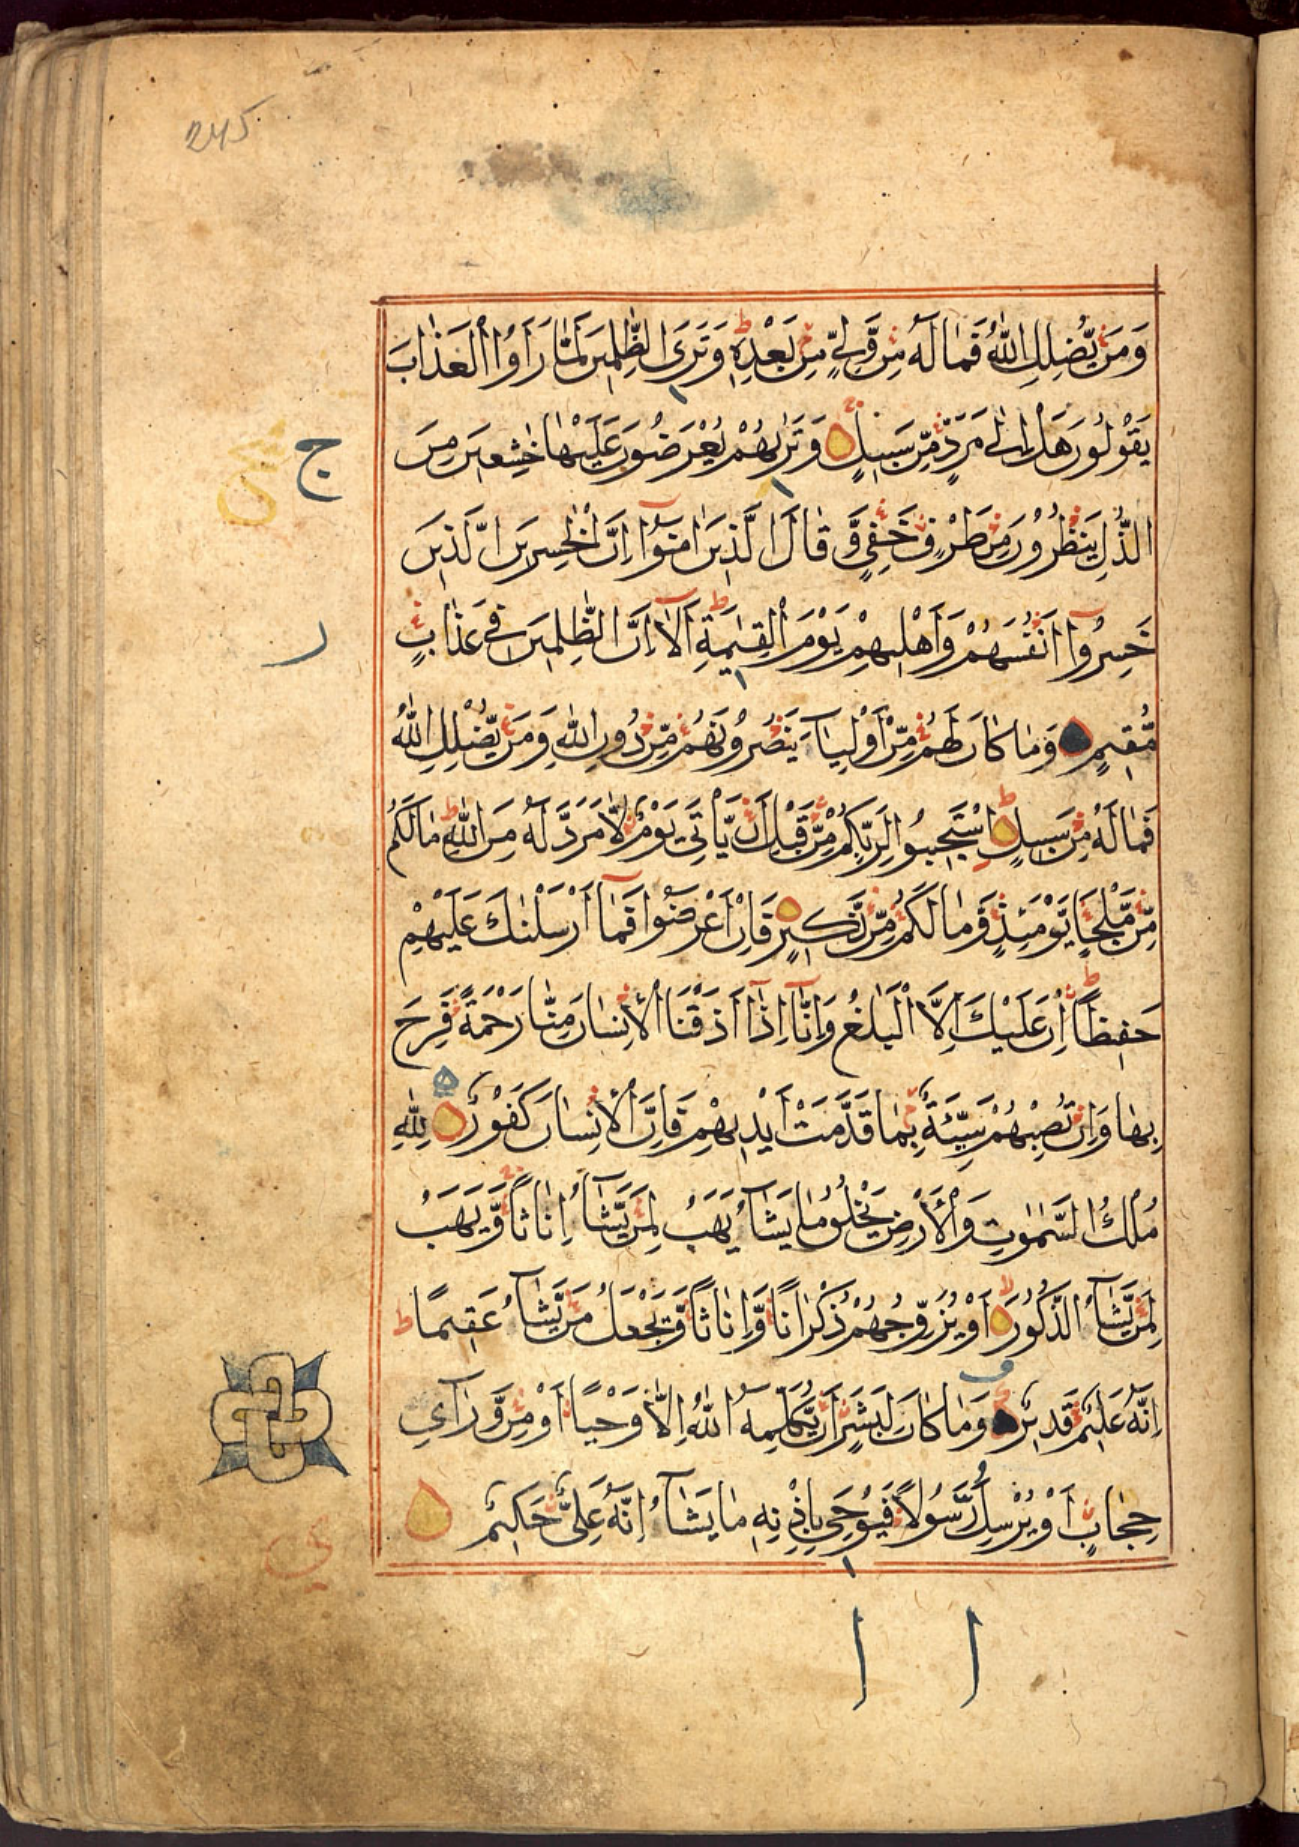 245
وَمَنْ يُّضْلِلِ اللّٰهُ فَمَا لَهٗ مِنْ وَّلِيٍّ مِنْ بَعْدِهٖ ط وَتَرَى الظّٰلِمِيْنَ لَمَّا رَاَوُا الْعَذَابَ
يَقُوْلُوْنَ هَلْ اِلٰى مَرَدٍّ مِّنْ سَبِيْلٍ وَتَرٰىهُمْ يُعْرَضُوْنَ عَلَيْهَا خٰشِعِيْنَ مِنَ
ج
الذُّلِّ يَنْظُرُوْنَ مِنْ طَرْفٍ خَفِيٍّ وَّقَالَ الَّذِيْنَ اٰمَنُوْٓا اِنَّ الْخٰسِرِيْنَ الَّذِيْنَ
خَسِرُوْٓا اَنْفُسَهُمْ وَاَهْلِيْهِمْ يَوْمَ الْقِيٰمَةِ ط اَلَآ اِنَّ الظّٰلِمِيْنَ فِيْ عَذَابٍ
ر
مُّقِيْمٍ وَمَا كَانَ لَهُمْ مِّنْ اَوْلِيَآءَ يَنْصُرُوْنَهُمْ مِّنْ دُوْنِ اللّٰهِ وَمَنْ يُّضْلِلِ اللّٰهُ
فَمَا لَهٗ مِنْ سَبِيْلٍ ط اِسْتَجِيْبُوْا لِرَبِّكُمْ مِّنْ قَبْلِ اَنْ يَّاْتِيَ يَوْمٌ لَّا مَرَدَّ لَهٗ مِنَ اللّٰهِ ط مَا لَكُمْ
مِّنْ مَّلْجَاٍ يَّوْمَئِذٍ وَّمَا لَكُمْ مِّنْ نَّكِيْرٍ فَاِنْ اَعْرَضُوْا فَمَآ اَرْسَلْنٰكَ عَلَيْهِمْ
حَفِيْظًا ط اِنْ عَلَيْكَ اِلَّا الْبَلٰغُ وَاِنَّآ اِذَآ اَذَقْنَا الْاِنْسَانَ مِنَّا رَحْمَةً فَرِحَ
بِهَا وَاِنْ تُصِبْهُمْ سَيِّئَةٌ بِمَا قَدَّمَتْ اَيْدِيْهِمْ فَاِنَّ الْاِنْسَانَ كَفُوْرٌ لِلّٰهِ
مُلْكُ السَّمٰوٰتِ وَالْاَرْضِ يَخْلُقُ مَا يَشَآءُ يَهَبُ لِمَنْ يَّشَآءُ اِنَاثًا وَّيَهَبُ
لِمَنْ يَّشَآءُ الذُّكُوْرَ لا اَوْ يُزَوِّجُهُمْ ذُكْرَانًا وَّاِنَاثًا وَّيَجْعَلُ مَنْ يَّشَآءُ عَقِيْمًا ط
اِنَّهٗ عَلِيْمٌ قَدِيْرٌ وَمَا كَانَ لِبَشَرٍ اَنْ يُّكَلِّمَهُ اللّٰهُ اِلَّا وَحْيًا اَوْ مِنْ وَّرَآئِ
حِجَابٍ اَوْ يُرْسِلَ رَسُوْلًا فَيُوْحِيَ بِاِذْنِهٖ مَا يَشَآءُ اِنَّهٗ عَلِيٌّ حَكِيْمٌ
ا ا